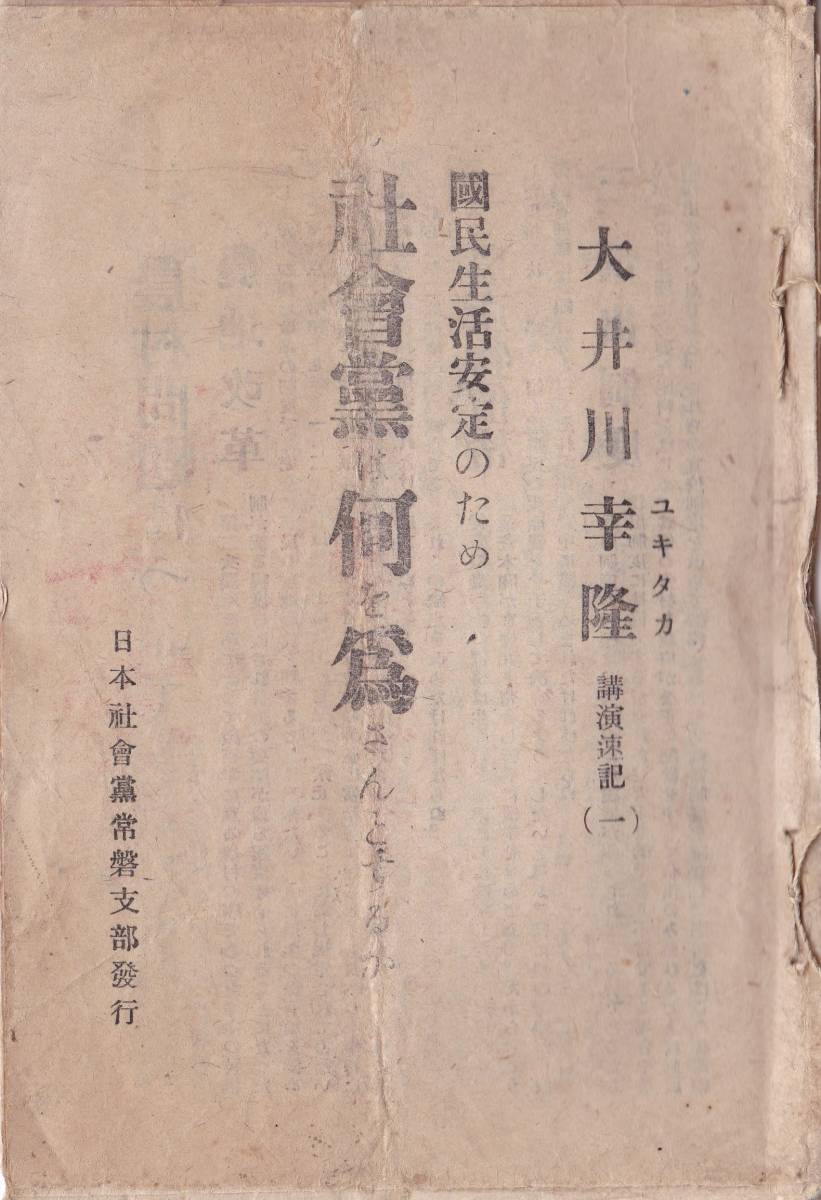 大井川幸隆
ユキタカ
講演速記(一)
國民生活安定のため
社會黨は何を爲さんとするか
日本社會黨常磐支部發行